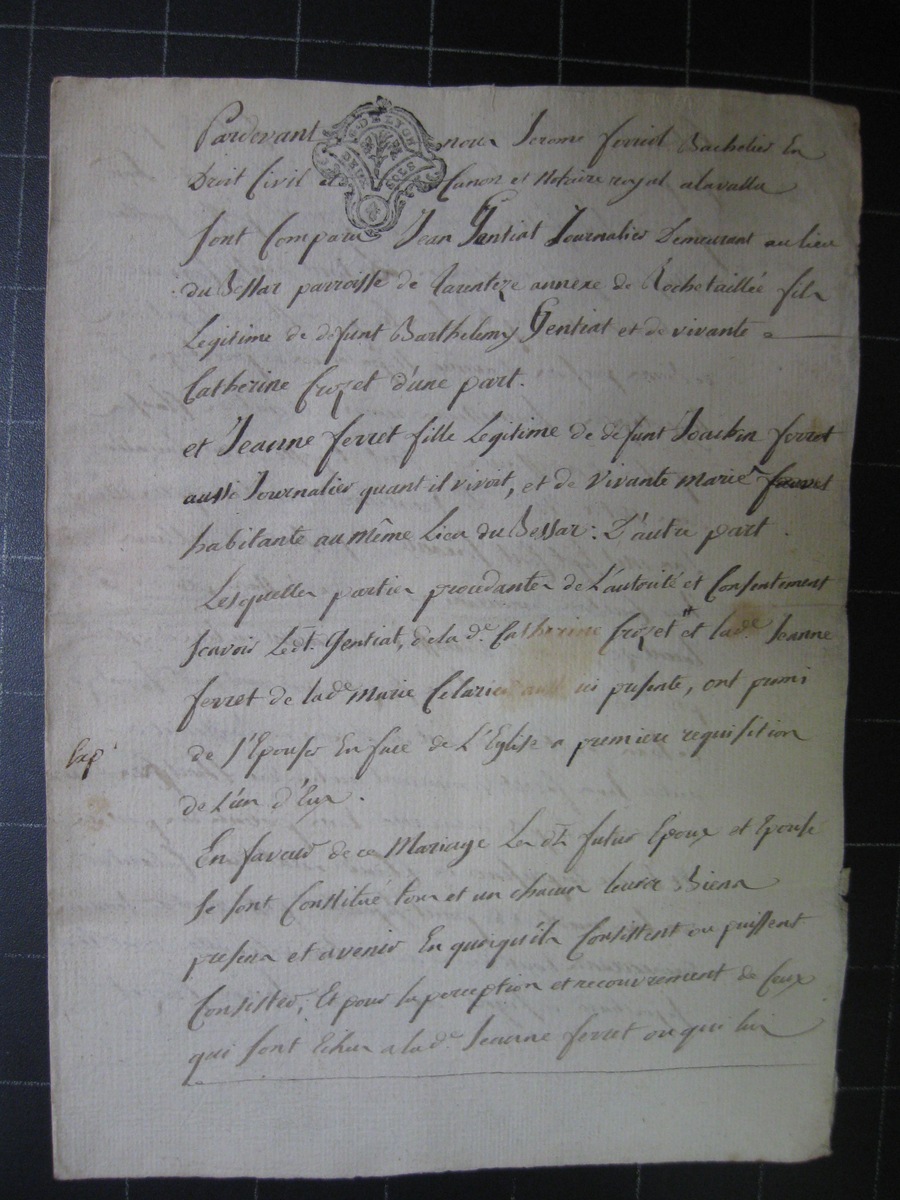 Pardevant nous Jerome ferriol Bachelier En
Droit Civil et Canon et Notaire royal alavalla
sont Comparu Jean Gentiat Journalier Demeurant au lieu
du Bessat parroisse de Tarenteze annexe de Rochetaillée fils
Legitime de défunt Barthelemy Gentiat et de vivante
Catherine Crozet d'une part.
et Jeanne ferret fille Legitime de défunt Joachin ferret
aussi Journalier quant il vivoit, et de vivante Marie
habitante au même Lieu du Bessat: D'autre part.
Lesquelles parties procedantes de L'autorité et Consentement
scavoir Ledt. Gentiat, de la de. Catherine Crozet et lade. Jeanne
ferret de lade Marie ici presente, ont promi
de s'Epouser En face de L'Eglise a premiere requisition
de L'un d'Eux.
En faveur de ce Mariage Lesdts futurs Epoux et Epouse
se sont Constitué tous et un chacun leurs Biens
presens et avenir En quoiqu'ils Consistent ou puissent
Consister, Et pour la perception et recouvrement de Ceux
qui sont Echus a la de. Jeanne ferret ou qui lui